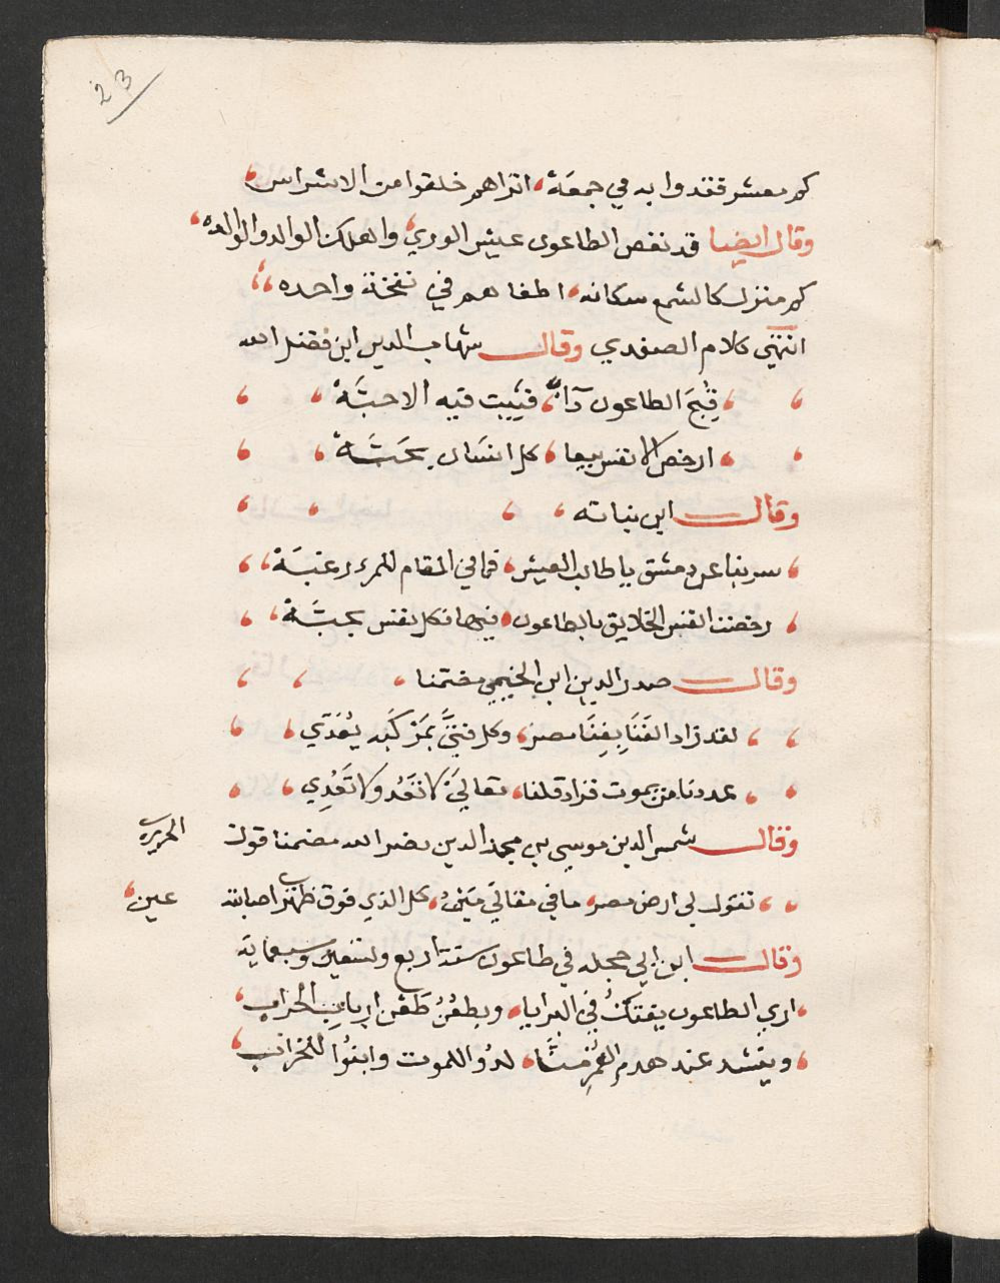 23
كم معشر فقدوا به في جمعة، اتراهم خلقوا من الاشراس
وقال ايضا قد نغص الطاعون عيش الوري، واهلك الوالد والوالده
كم منزل كالشمع سكانه، اطفاهم في نفخة واحده
انتهي كلام الصفدي وقال شهاب الدين ابن فضل الله
قبح الطاعون دآءً، فنيت فيه الاحبّة
ارخص الانفس بيعا، كل انسان بحبّة
وقال ابن نباته
سر بنا عن دمشق يا طالب العيش، فما في المقام للمرء رغبة
رخصت انفس الخلايق بالطاعون، فيها فكل نفس بحبّة
وقال صدر الدين ابن الخيمي مضمنا
لقد زاد الفنا بفنا مصر، وكل فتيً بمن كبد يُفدّي
عددنا من يموت فزاد قلنا، تعالي لا نعد ولا تعدي
وقال شمس الدين موسي بن محمد الدين نضر الله مضمنا قول الحريري
تقول لي ارض مصر، ما في مقالي مين، كل الذي فوق ظهري اصابته عين
وقال ابن ابي حجله في طاعون سنة اربع وستين وسبعمايه
اري الطاعون يفتك في البرايا، ويطعن طعن ارباب الحراب
وينشد عند هدم العمر منا، لدوا للموت وابنوا للخراب